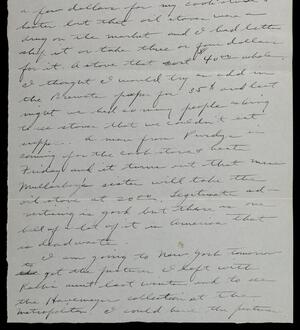 a few dollars for my cook stove &
heater but the oil stoves were a
drug on the market and I had better
ship it or take three or four dollars
for it. A stove that cost $40.00 whole
I thought I would try an add in
the Brewster paper for 35¢ and last
night we had so many people asking
to see stoves that we couldn't eat
supper. A man from Purdys is
coming for the cook stove & heater
Friday and it turns out that Miss
sister will take the
oil stove at 20.00. Legitimate ad-
vertising is good but there is one
hell of a lot of it in America that
is dead waste.
I am going to New York tomorrow
to get the pictures I left with
aunt last winter and to see
the Havemeyer collection at the
Metropolitan. I could have the pictures